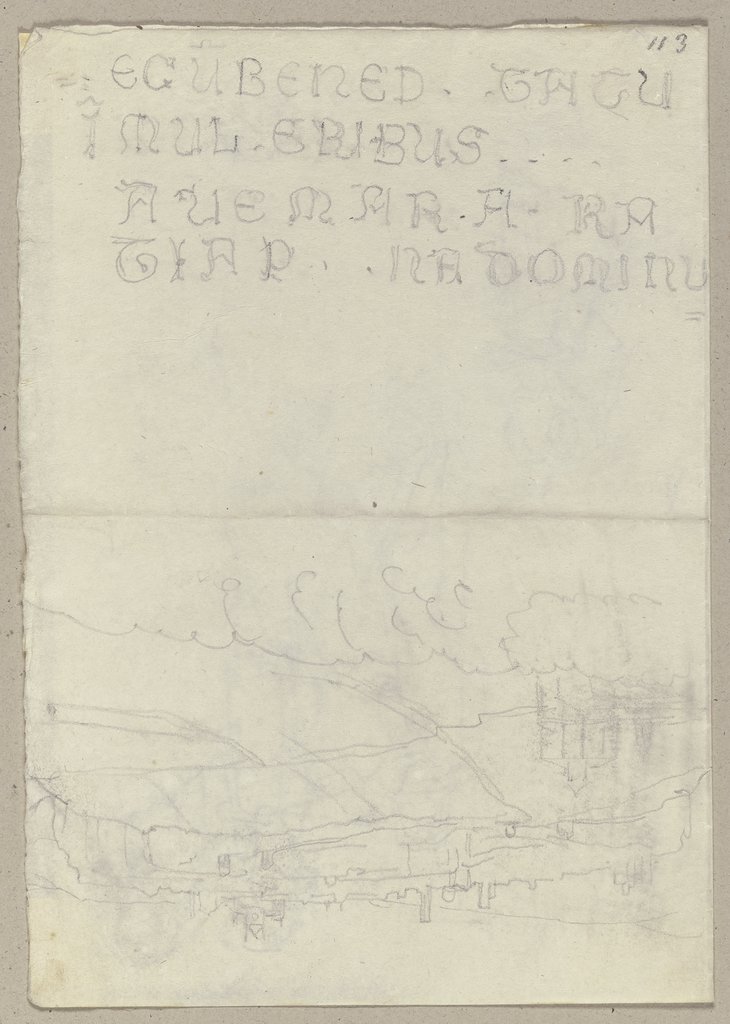 113
ECŪBENED . . TATU
ĨMUL.ERIBUS....
AUEMAR.A- RA
TIAP . . NADOMINU